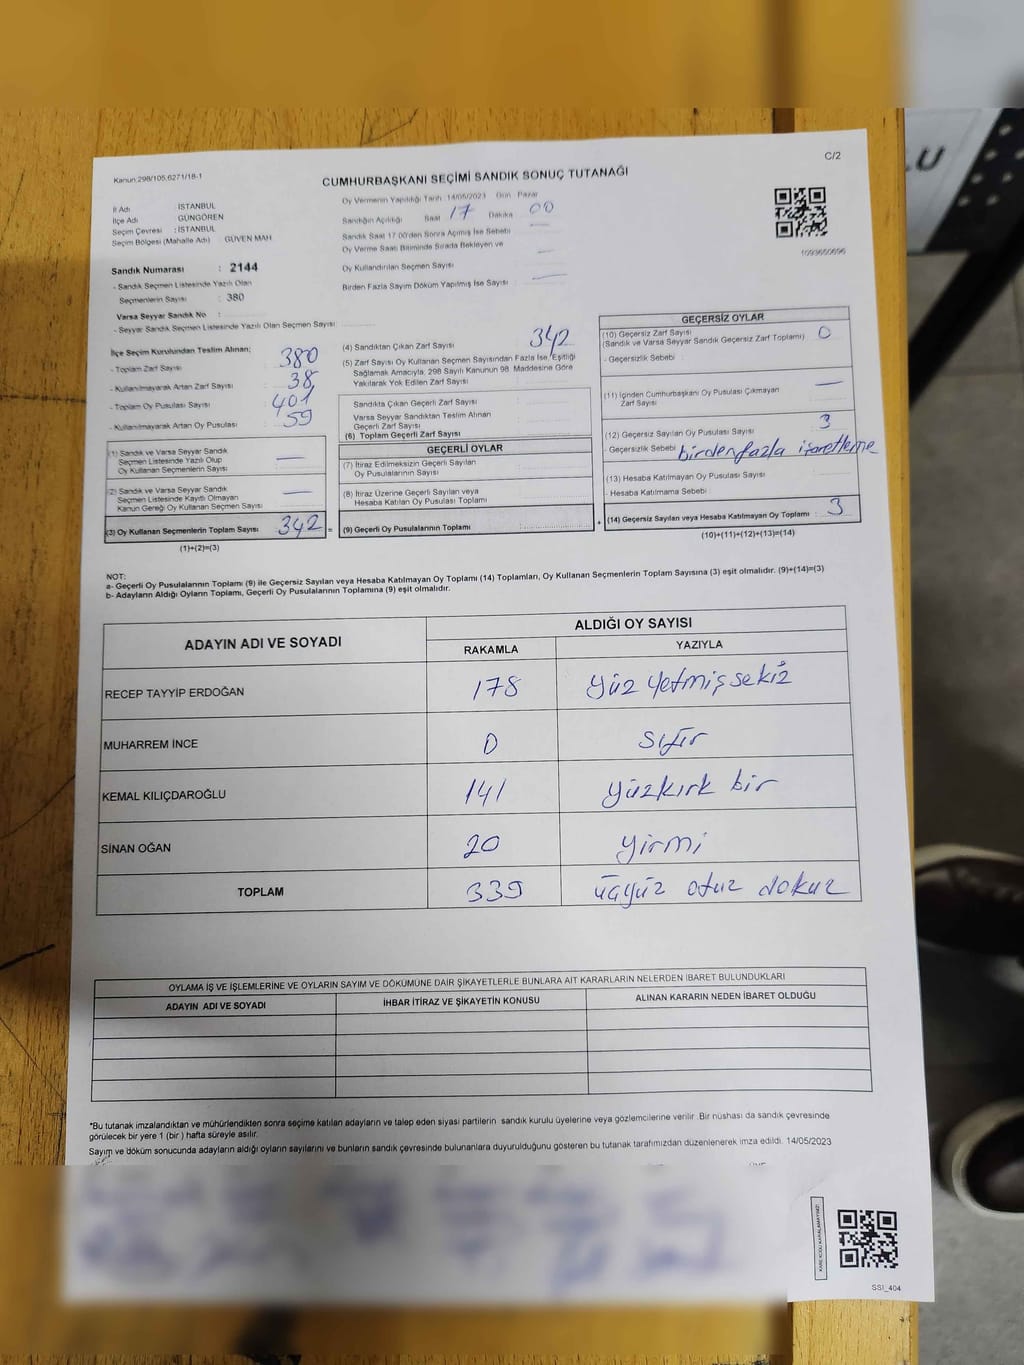 C/2
Kanun:298/105,6271/18-1
CUMHURBAŞKANI SEÇİMİ SANDIK SONUÇ TUTANAĞI
İl Adı : İSTANBUL
İlçe Adı : GÜNGÖREN
Seçim Çevresi : İSTANBUL
Seçim Bölgesi (Mahalle Adı) GÜVEN MAH
Sandık Numarası : 2144
- Sandık Seçmen Listesinde Yazılı Olan
Seçmenlerin Sayısı : 380
Varsa Seyyar Sandık No :
- Seyyar Sandık Seçmen Listesinde Yazılı Olan Seçmen Sayısı
Oy Vermenin Yapıldığı Tarih :14/05/2023 Gün : Pazar
Sandığın Açıldığı Saat 17 Dakika 00
Sandık Saat 17:00'den Sonra Açılmış İse Sebebi —
Oy Verme Saati Bitiminde Sırada Bekleyen ve
Oy Kullandırılan Seçmen Sayısı —
Birden Fazla Sayım Döküm Yapılmış İse Sayısı —
1093650696
İlçe Seçim Kurulundan Teslim Alınan;
- Toplam Zarf Sayısı 380
- Kullanılmayarak Artan Zarf Sayısı 38
- Toplam Oy Pusulası Sayısı 401
- Kullanılmayarak Artan Oy Pusulası 59
(1) Sandık ve Varsa Seyyar Sandık
Seçmen Listesinde Yazılı Olup
Oy Kullanan Seçmenlerin Sayısı —
(2) Sandık ve Varsa Seyyar Sandık
Seçmen Listesinde Kayıtlı Olmayan
Kanun Gereği Oy Kullanan Seçmen Sayısı —
(3) Oy Kullanan Seçmenlerin Toplam Sayısı 342 =
(1)+(2)=(3)
(4) Sandıktan Çıkan Zarf Sayısı 342
(5) Zarf Sayısı Oy Kullanan Seçmen Sayısından Fazla İse, Eşitliği
Sağlamak Amacıyla, 298 Sayılı Kanunun 98. Maddesine Göre
Yakılarak Yok Edilen Zarf Sayısı
Sandıkta Çıkan Geçerli Zarf Sayısı
Varsa Seyyar Sandıktan Teslim Alınan
Geçerli Zarf Sayısı
(6) Toplam Geçerli Zarf Sayısı
GEÇERLİ OYLAR
(7) İtiraz Edilmeksizin Geçerli Sayılan
Oy Pusulalarının Sayısı
(8) İtiraz Üzerine Geçerli Sayılan veya
Hesaba Katılan Oy Pusulası Toplamı
(9) Geçerli Oy Pusulalarının Toplamı +
GEÇERSİZ OYLAR
(10) Geçersiz Zarf Sayısı 0
(Sandık ve Varsa Seyyar Sandık Geçersiz Zarf Toplamı)
- Geçersizlik Sebebi :
(11) İçinden Cumhurbaşkanı Oy Pusulası Çıkmayan
Zarf Sayısı —
(12) Geçersiz Sayılan Oy Pusulası Sayısı 3
- Geçersizlik Sebebi birden fazla işaretleme
(13) Hesaba Katılmayan Oy Pusulası Sayısı
- Hesaba Katılmama Sebebi
(14) Geçersiz Sayılan veya Hesaba Katılmayan Oy Toplamı 3
(10)+(11)+(12)+(13)=(14)
NOT:
a- Geçerli Oy Pusulalarının Toplamı (9) ile Geçersiz Sayılan veya Hesaba Katılmayan Oy Toplamı (14) Toplamları, Oy Kullanan Seçmenlerin Toplam Sayısına (3) eşit olmalıdır. (9)+(14)=(3)
b- Adayların Aldığı Oyların Toplamı, Geçerli Oy Pusulalarının Toplamına (9) eşit olmalıdır.
ADAYIN ADI VE SOYADI ALDIĞI OY SAYISI
RAKAMLA YAZIYLA
RECEP TAYYİP ERDOĞAN 178 yüz yetmiş sekiz
MUHARREM İNCE 0 sıfır
KEMAL KILIÇDAROĞLU 141 yüzkırk bir
SİNAN OĞAN 20 yirmi
TOPLAM 339 üçyüz otuz dokuz
OYLAMA İŞ VE İŞLEMLERİNE VE OYLARIN SAYIM VE DÖKÜMÜNE DAİR ŞİKAYETLERLE BUNLARA AİT KARARLARIN NELERDEN İBARET BULUNDUKLARI
ADAYIN ADI VE SOYADI İHBAR İTİRAZ VE ŞİKAYETİN KONUSU ALINAN KARARIN NEDEN İBARET OLDUĞU
*Bu tutanak imzalandıktan ve mühürlendikten sonra seçime katılan adayların ve talep eden siyasi partilerin sandık kurulu üyelerine veya gözlemcilerine verilir. Bir nüshası da sandık çevresinde
görülecek bir yere 1 (bir) hafta süreyle asılır.
Sayım ve döküm sonucunda adayların aldığı oyların sayılarını ve bunların sandık çevresinde bulunanlara duyurulduğunu gösteren bu tutanak tarafımızdan düzenlenerek imza edildi. 14/05/2023
KARE KODU KARALAMAYINIZ!
SSI_404